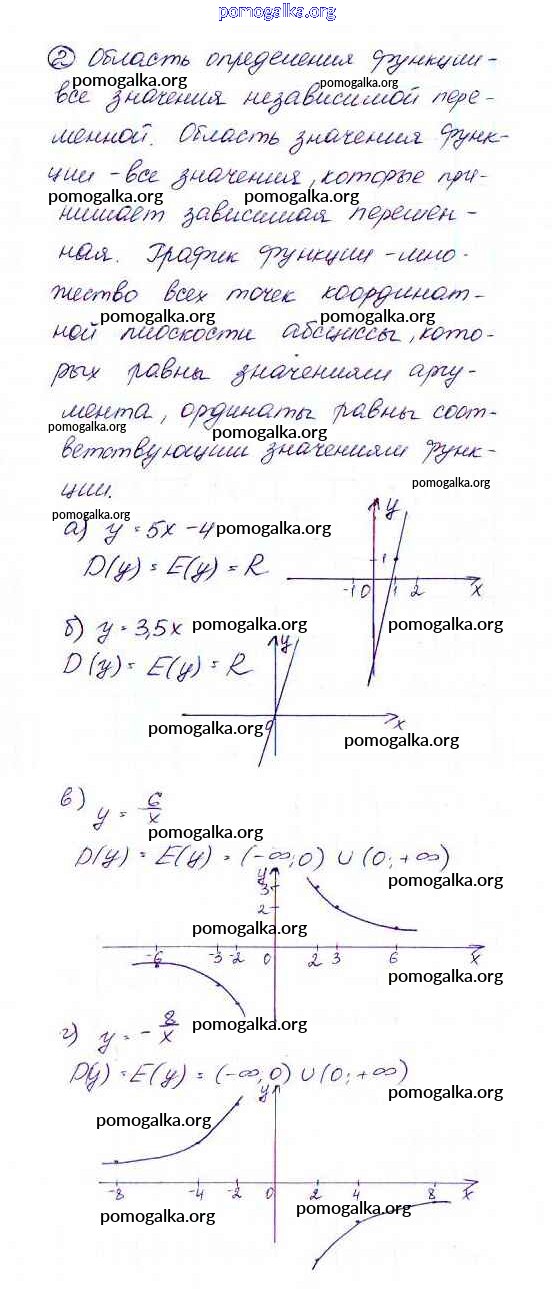 pomogalka.org
② Область определения функции -
pomogalka.org pomogalka.org
все значения независимой пере-
менной. Область значения функ-
ции - все значения, которые при-
pomogalka.org pomogalka.org
нимает зависимая перемен-
ная. График функции - мно-
жество всех точек координат-
pomogalka.org pomogalka.org
ной плоскости абсциссы, кото-
рых равны значениям аргу-
мента, ординаты равны соот-
pomogalka.org pomogalka.org
ветствующим значениям функ-
ции.
pomogalka.org pomogalka.org
а) y = 5x - 4 pomogalka.org
D(y) = E(y) = R
y
1
-1 0 1 2 x
б) y = 3,5x pomogalka.org pomogalka.org
D(y) = E(y) = R
y
0 x
pomogalka.org pomogalka.org
в) y = 6/x
pomogalka.org
D(y) = E(y) = (-∞; 0) ∪ (0; +∞)
pomogalka.org
y
3
2
pomogalka.org
-6 -3 -2 0 2 3 6 x
pomogalka.org
г) y = - 8/x
pomogalka.org
D(y) = E(y) = (-∞; 0) ∪ (0; +∞)
pomogalka.org
y
pomogalka.org
-8 -4 -2 0 2 4 8 x
pomogalka.org pomogalka.org